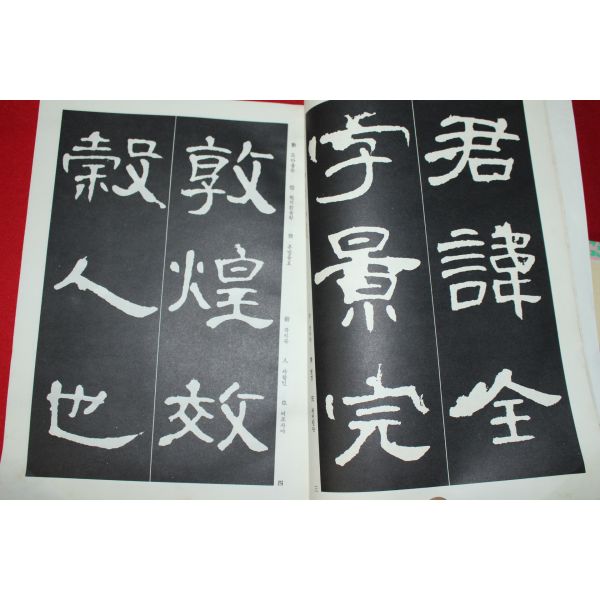 君諱全
字景完
敦煌效
穀人也
四
三